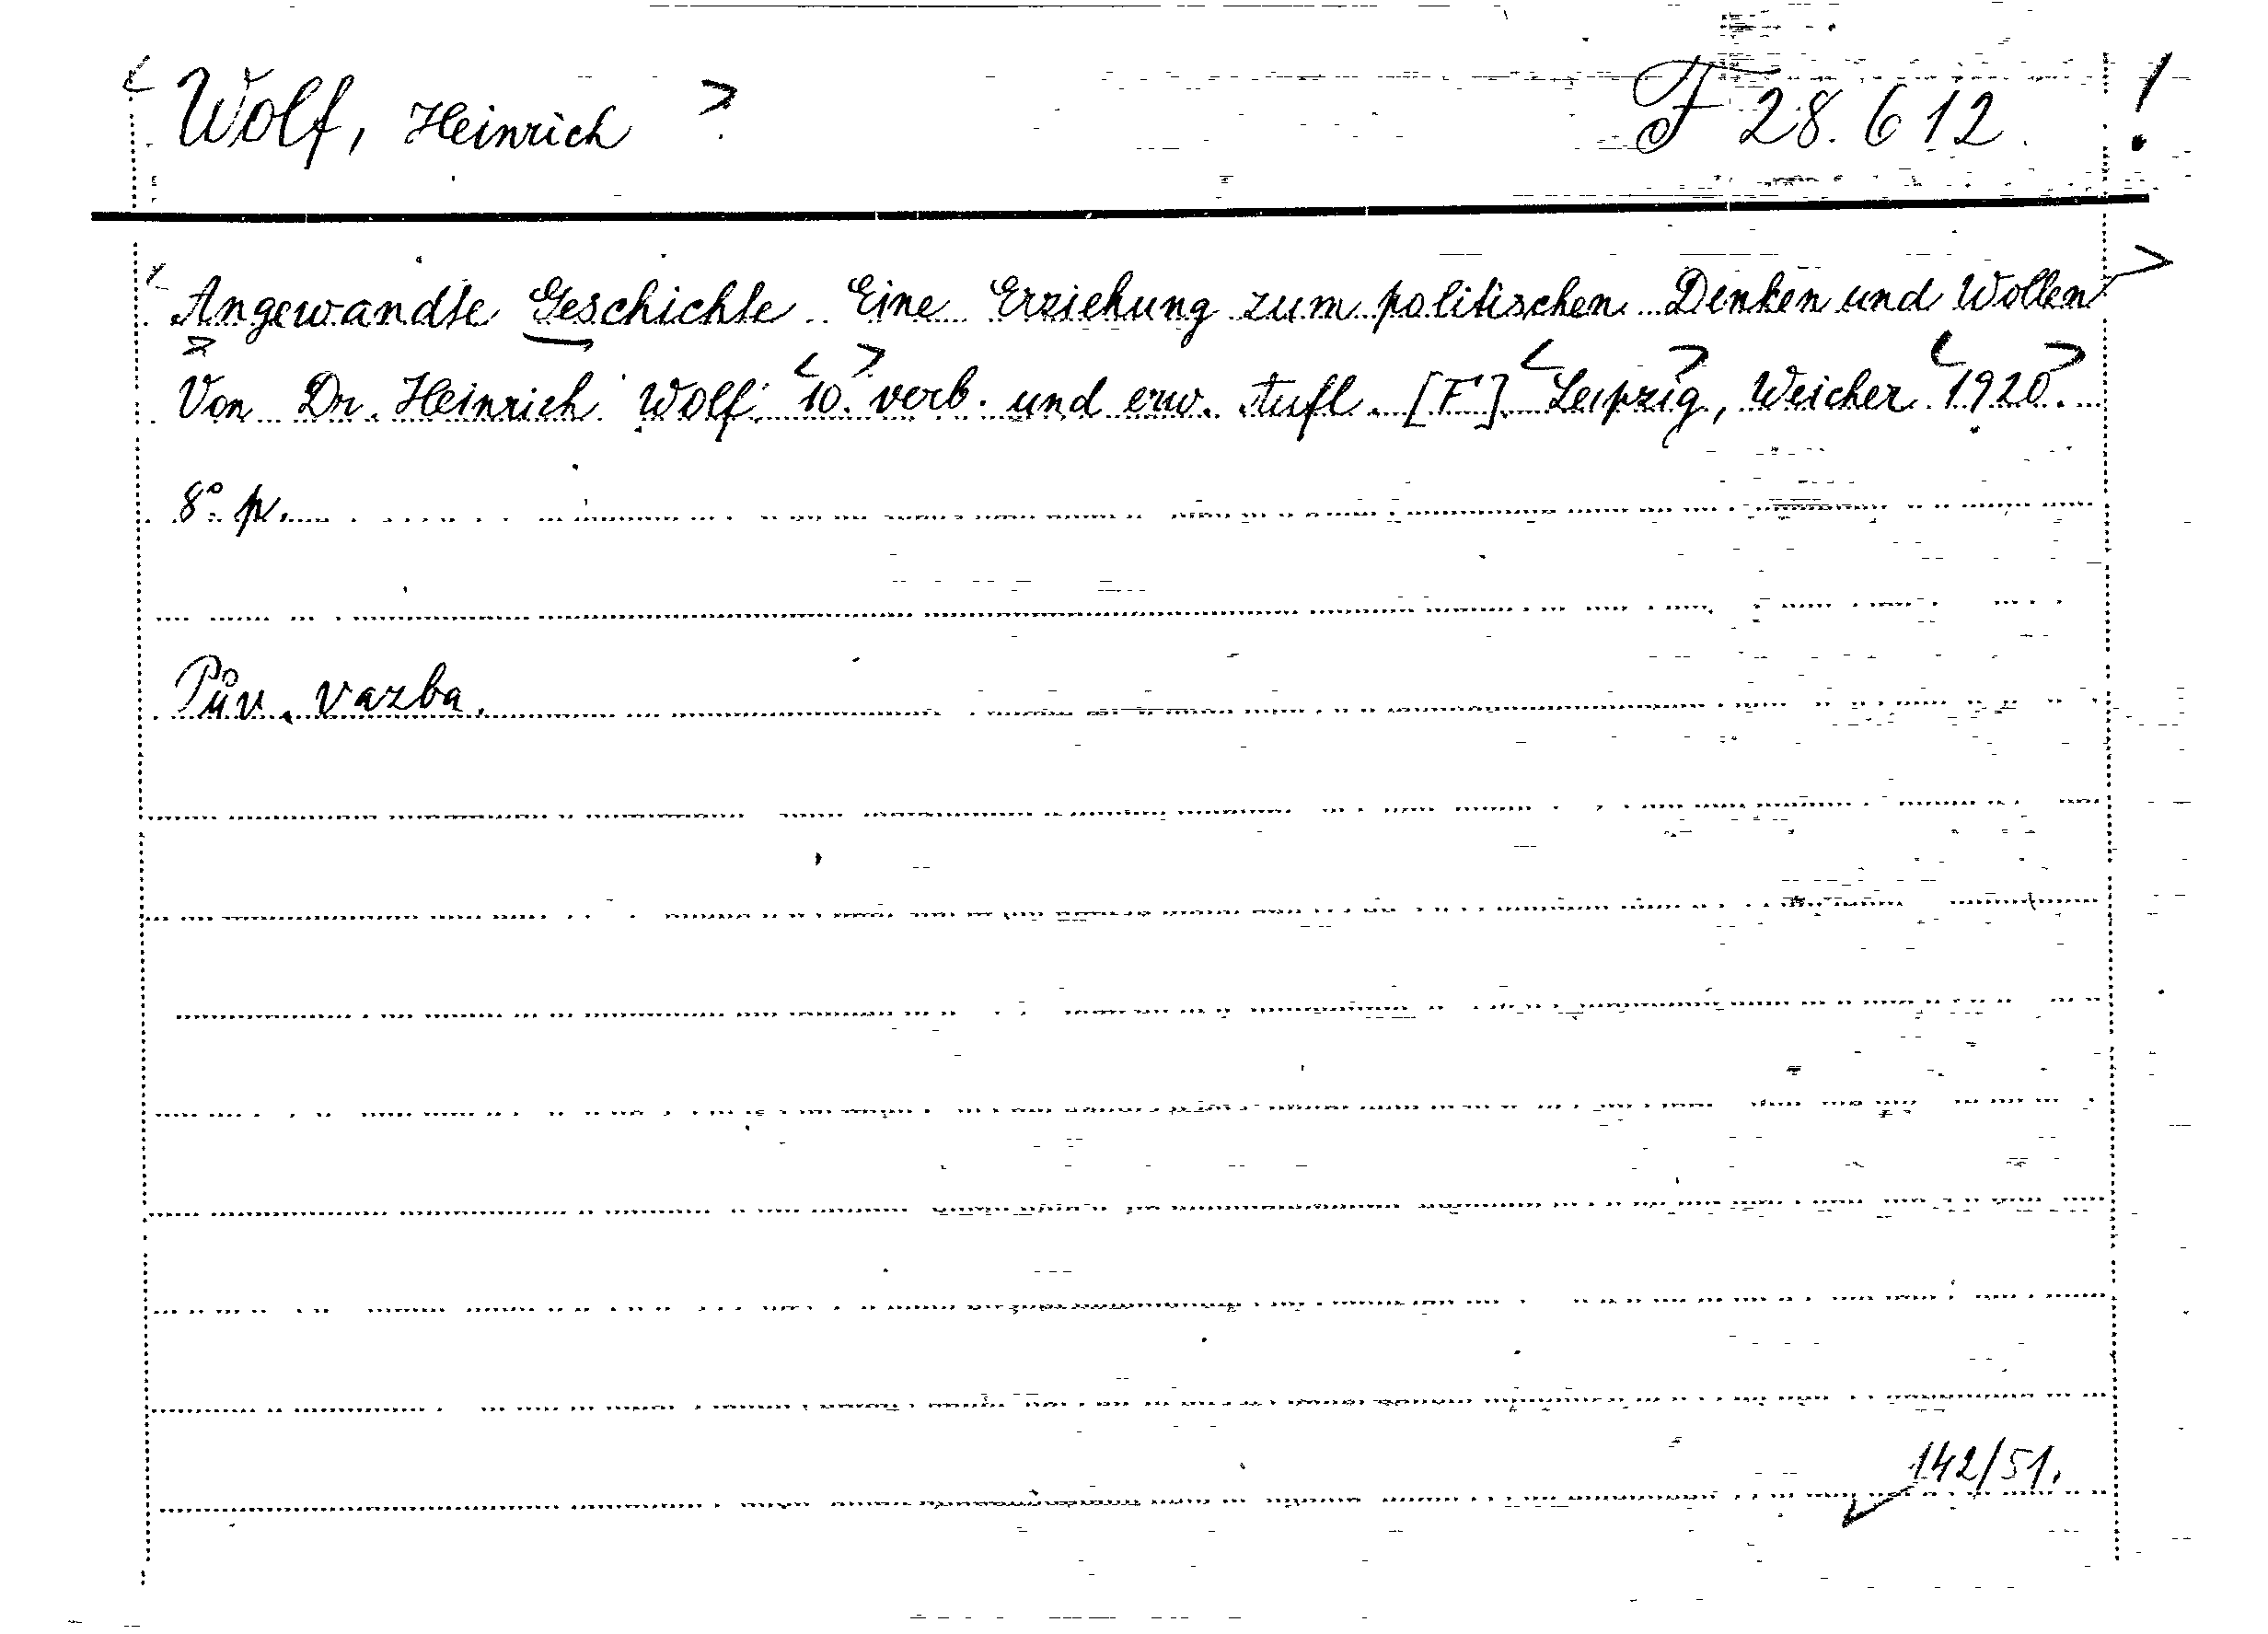 < Wolf, Heinrich > F 28.612. !
< Angewandte Geschichte Eine Erziehung zum politischen Denken und Wollen >
> Von Dr. Heinrich Wolf. <10.> verb. und erw. Aufl. [F]. <Leipzig>, Weicher <1920>.
8° p.
Pův. vazba.
142/51.